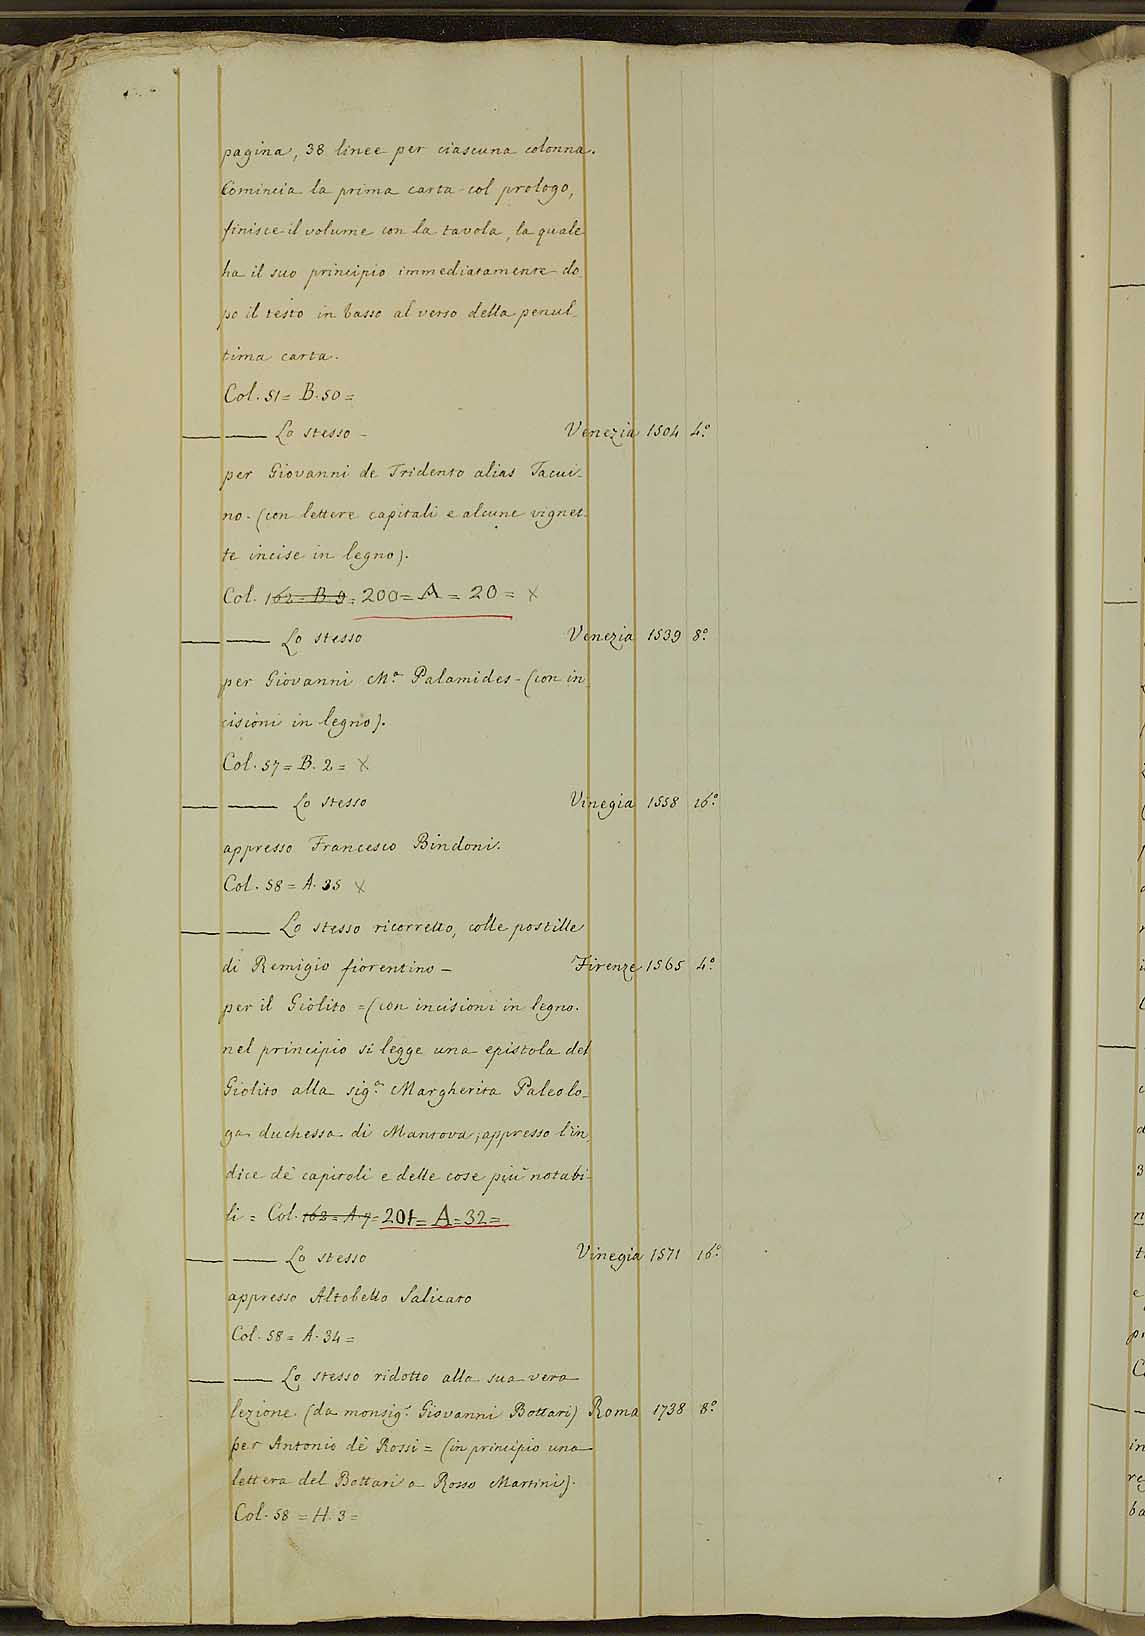 pagina, 38 linee per ciascuna colonna.
Comincia la prima carta col prologo,
finisce il volume con la tavola, la quale
ha il suo principio immediatamente do
po il testo in basso al verso della penul-
tima carta.
Col. 51 = B. 50 =
Lo stesso - Venezia 1504 4.º
per Giovanni de Tridento alias Tacui-
no - (con lettere capitali e alcune vignet-
te incise in legno).
Col. 162 = B. 9 = 200 = A = 20 = x
Lo stesso Venezia 1539 8.º
per Giovanni M.ª Palamides - (con in
cisioni in legno).
Col. 57 = B. 2 = x
Lo stesso Vinegia 1558 16.º
appresso Francesco Bindoni.
Col. 58 = A. 35 x
Lo stesso ricorretto, colle postille
di Remigio fiorentino - Firenze 1565 4.º
per il Giolito = (con incisioni in legno.
nel principio si legge una epistola del
Giolito alla sig.ª Margherita Paleolo-
ga duchessa di Mantova; appresso l'in
dice de' capitoli e delle cose più notabi-
li = Col. 162 = A. 7 = 201 = A = 32 =
Lo stesso Vinegia 1571 16.º
appresso Altobello Salicato
Col. 58 = A. 34 =
Lo stesso ridotto alla sua vera
lezione (da monsig.r Giovanni Bottari) Roma 1738 8.º
per Antonio de' Rossi = (in principio una
lettera del Bottari a Rosso Martini).
Col. 58 = H. 3 =